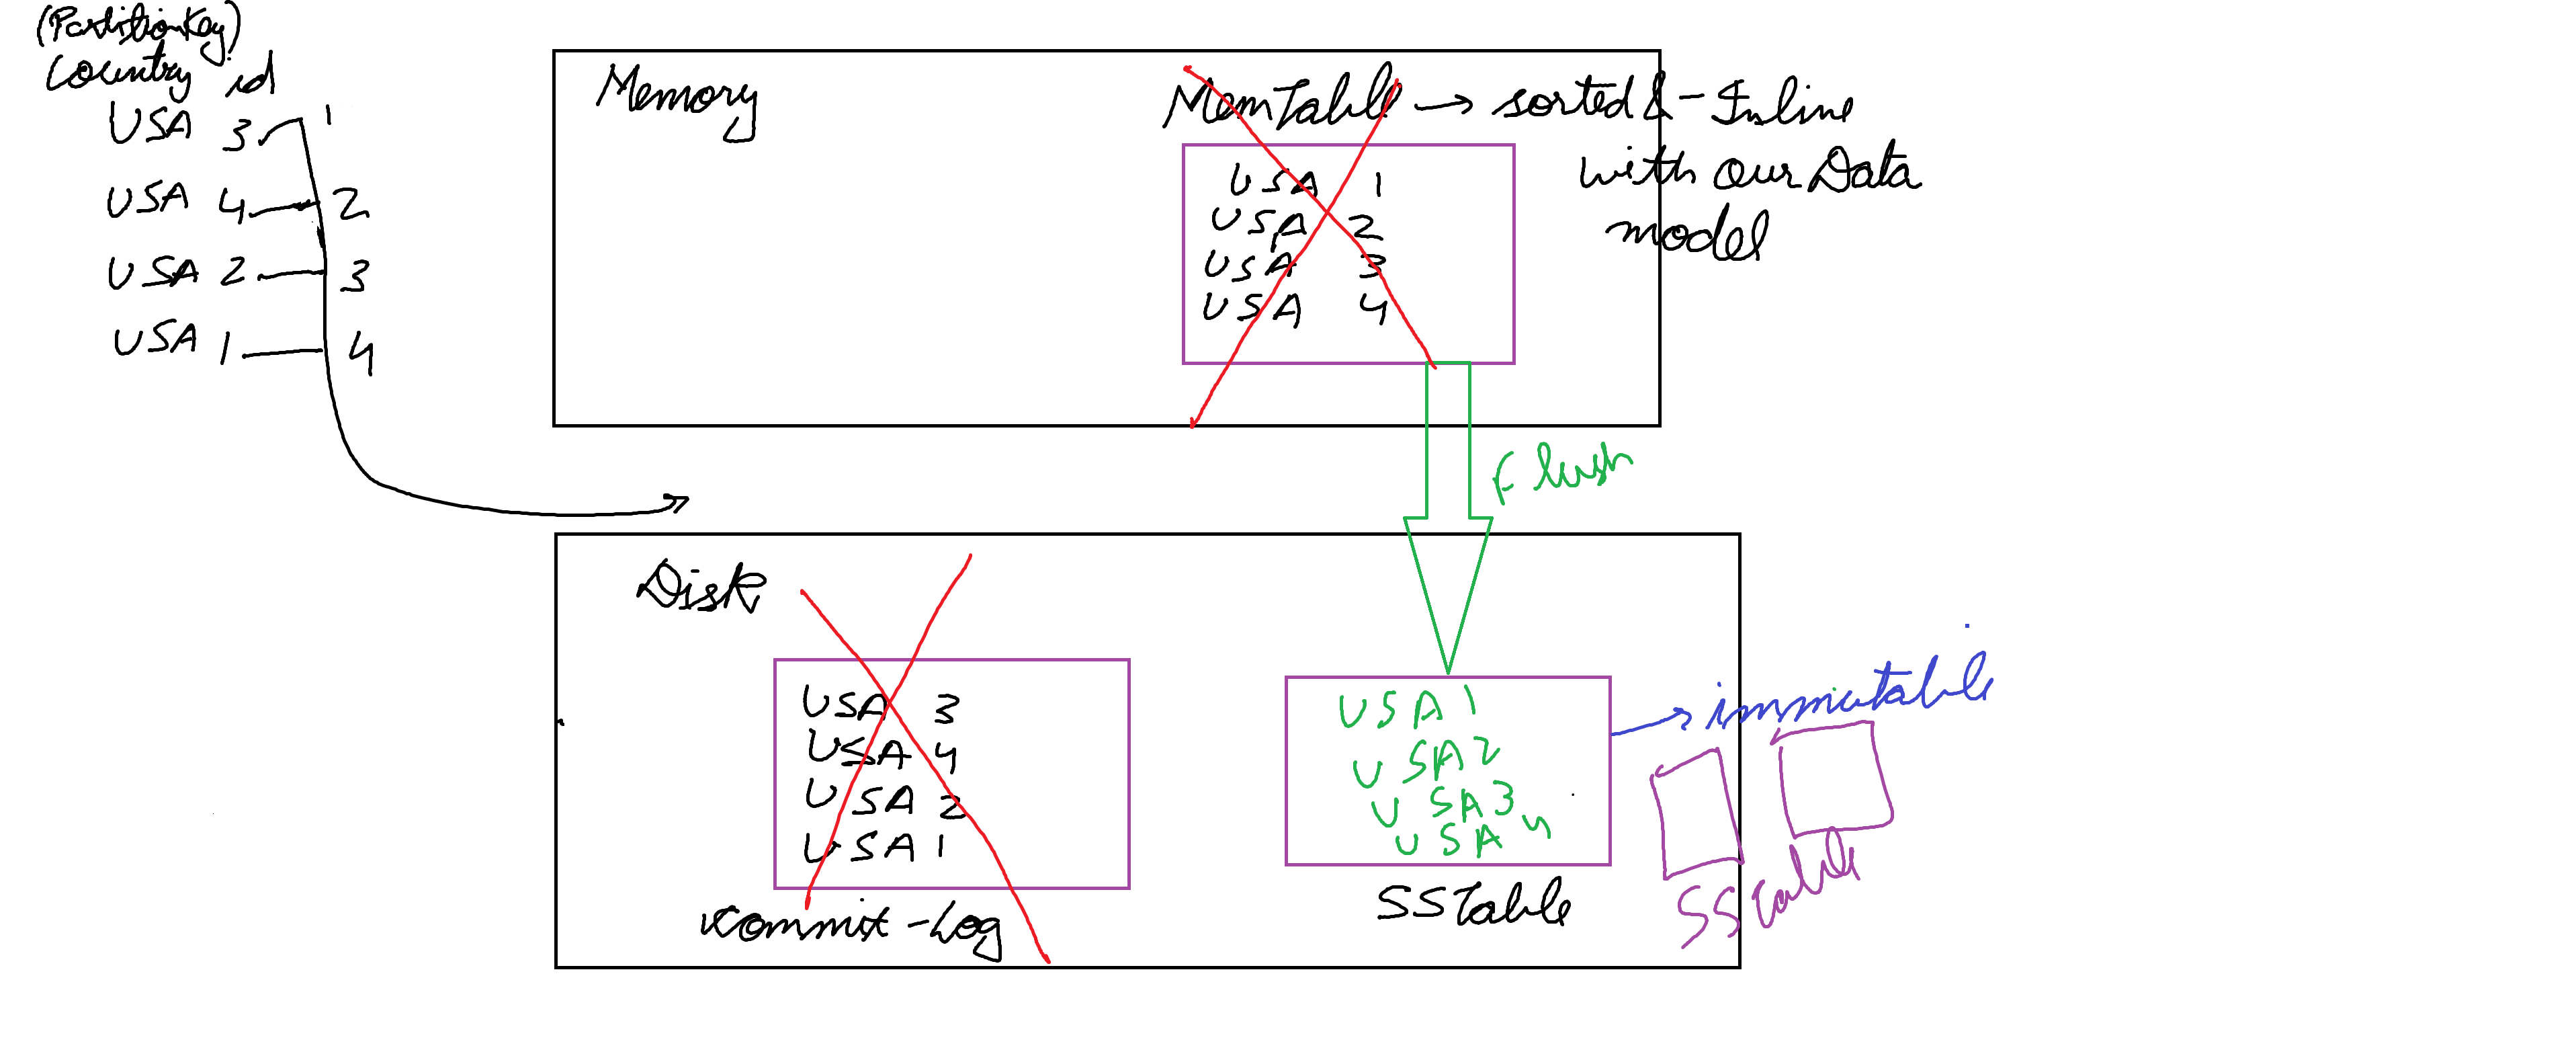 (Partition Key)
Country id
USA 3 1
USA 4 2
USA 2 3
USA 1 4
Memory
MemTable → sorted & - Inline
with our Data
model
USA 1
USA 2
USA 3
USA 4
Flush
Disk
USA 3
USA 4
USA 2
USA 1
Commit-Log
USA 1
USA 2
USA 3
USA 4
SSTable
→ immutable
SSTable